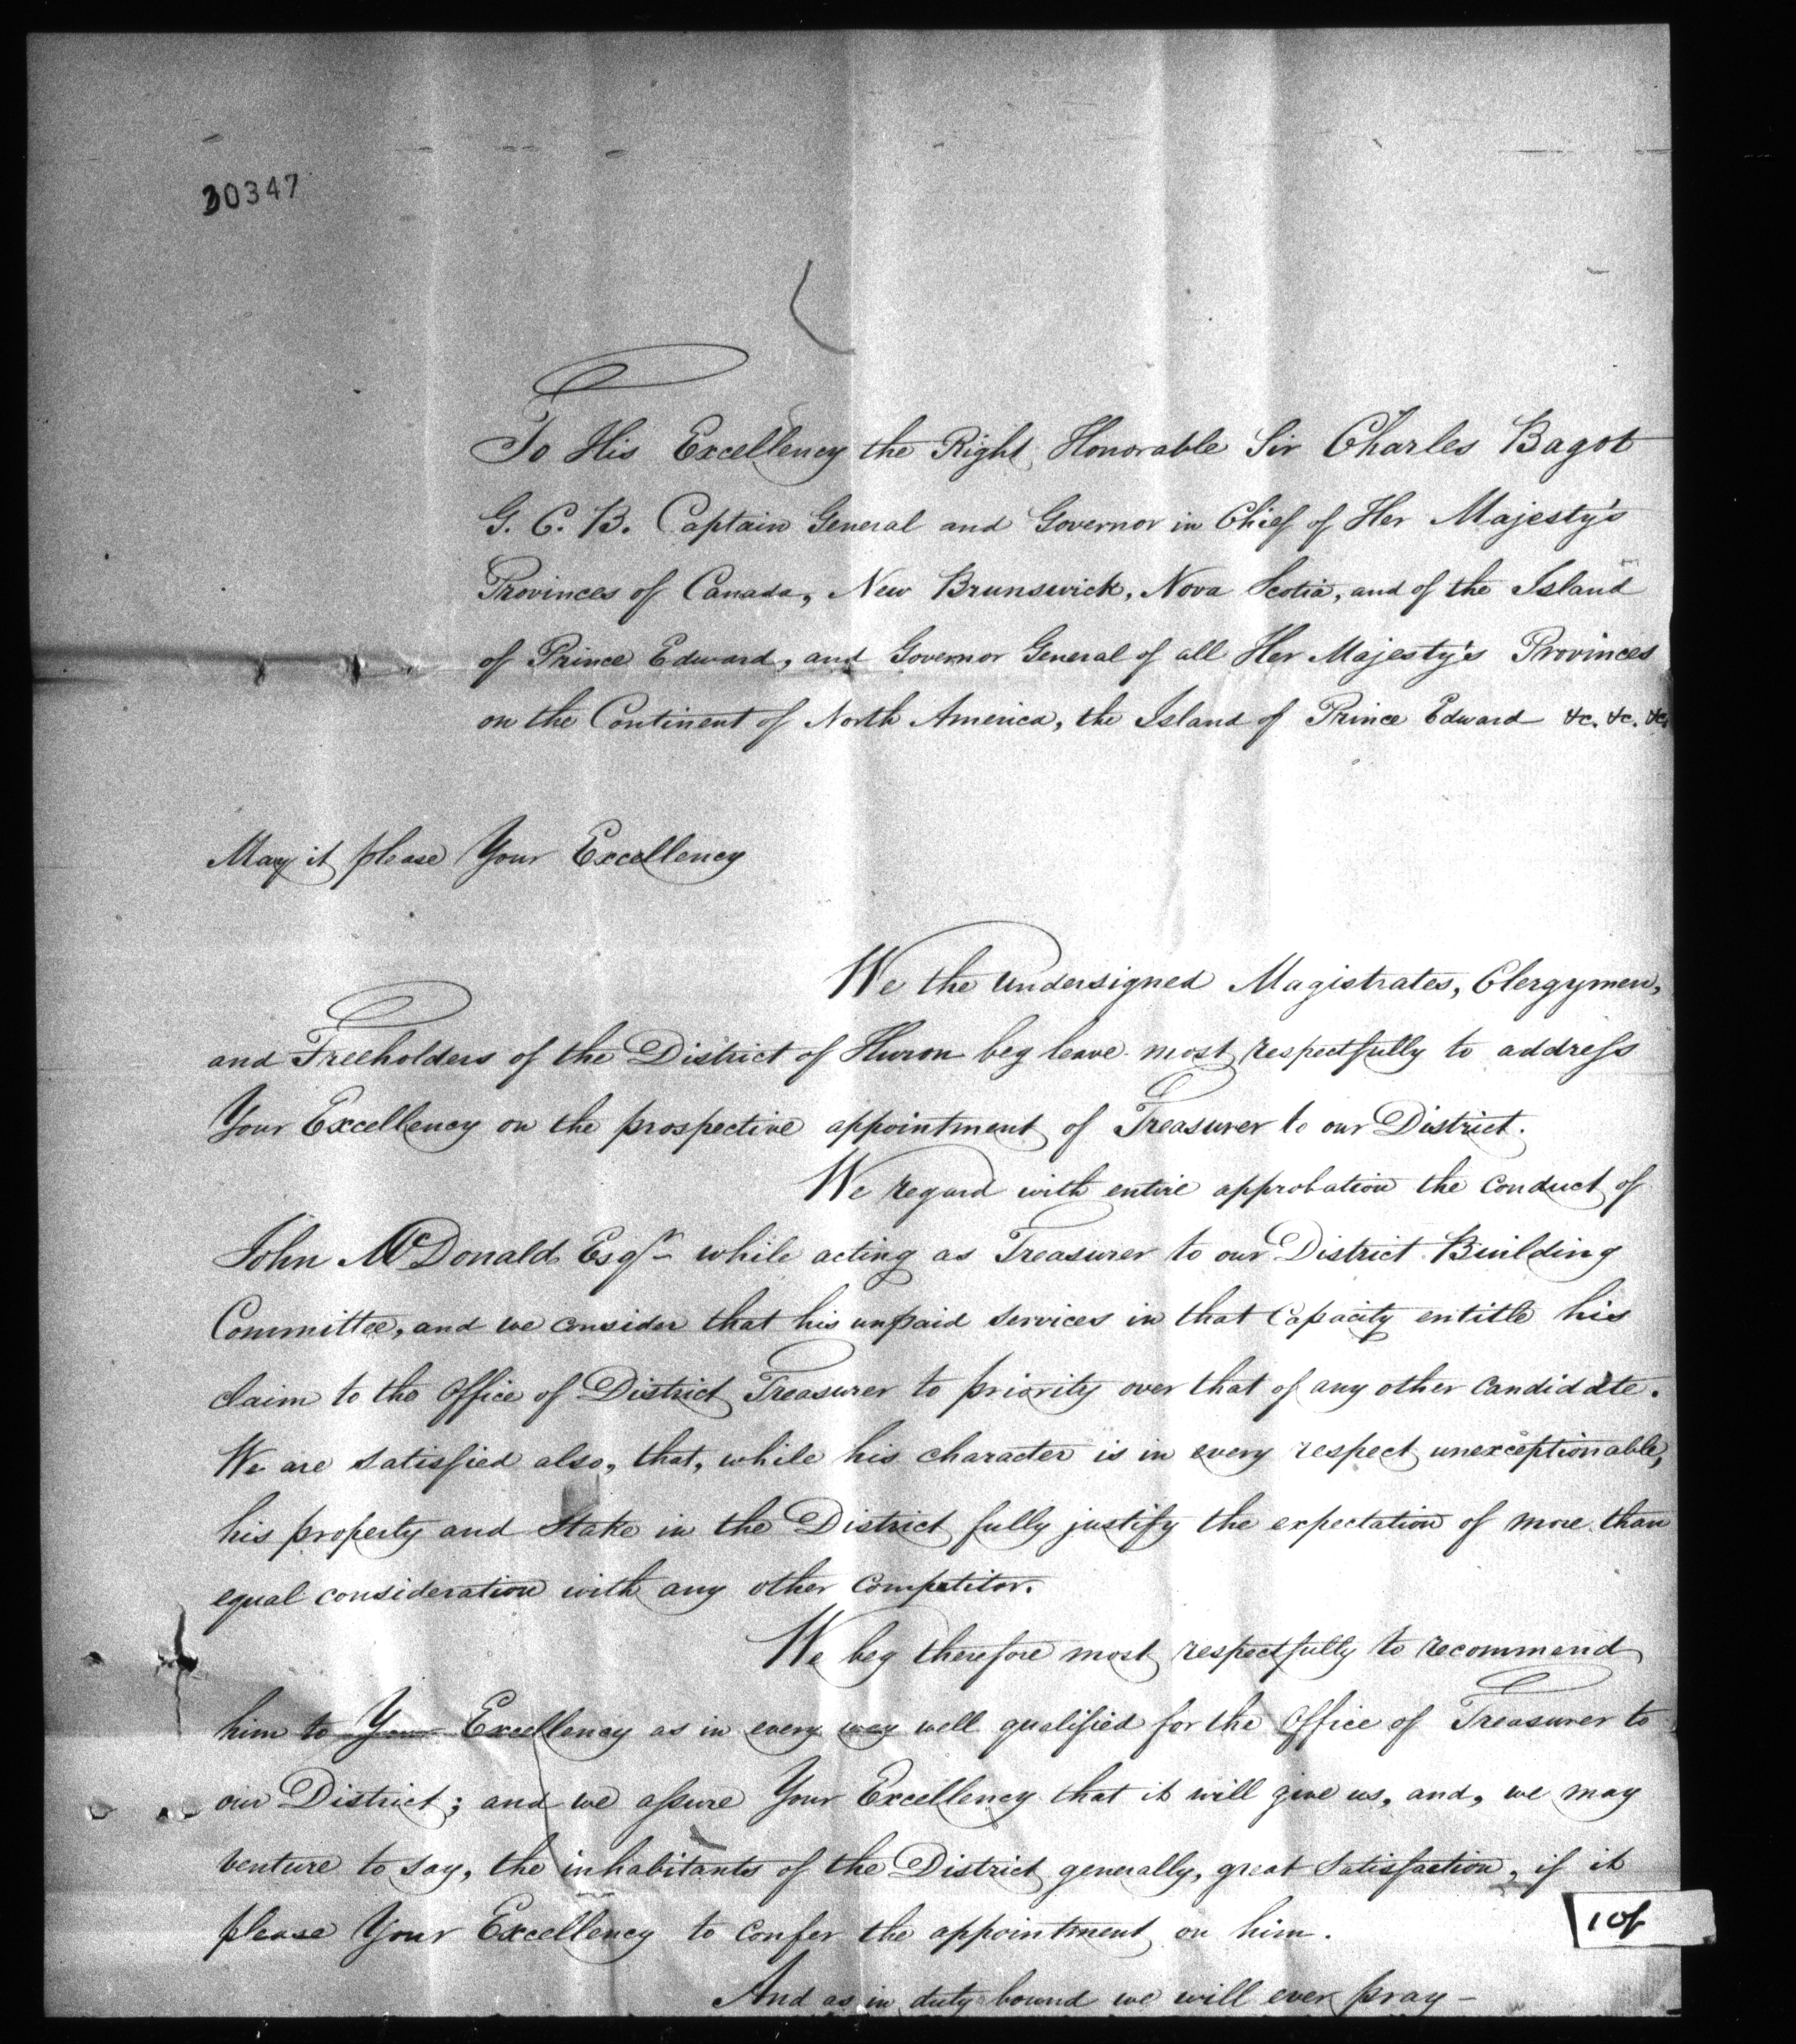 30347
To His Excellency the Right Honorable Sir Charles Bagot
G. C. B. Captain General and Governor in Chief of Her Majesty's
Provinces of Canada, New Brunswick, Nova Scotia, and of the Island
of Prince Edward, and Governor General of all Her Majesty's Provinces
on the Continent of North America, the Island of Prince Edward &c. &c. &c.
May it please Your Excellency
We the undersigned Magistrates, Clergymen,
and Freeholders of the District of Huron beg leave most respectfully to address
Your Excellency on the prospective appointment of Treasurer to our District.
We regard with entire approbation the conduct of
John McDonald Esqr while acting as Treasurer to our District Building
Committee, and we consider that his unpaid services in that capacity entitle his
claim to the Office of District Treasurer to priority over that of any other candidate.
We are satisfied also, that, while his character is in every respect unexceptionable,
his property and stake in the District fully justify the expectation of more than
equal consideration with any other competitor.
We beg therefore most respectfully to recommend
him to Your Excellency as in every way well qualified for the Office of Treasurer to
our District; and we assure Your Excellency that it will give us, and, we may
venture to say, the inhabitants of the District generally, great satisfaction, if it
please Your Excellency to confer the appointment on him.
And as in duty bound we will ever pray —